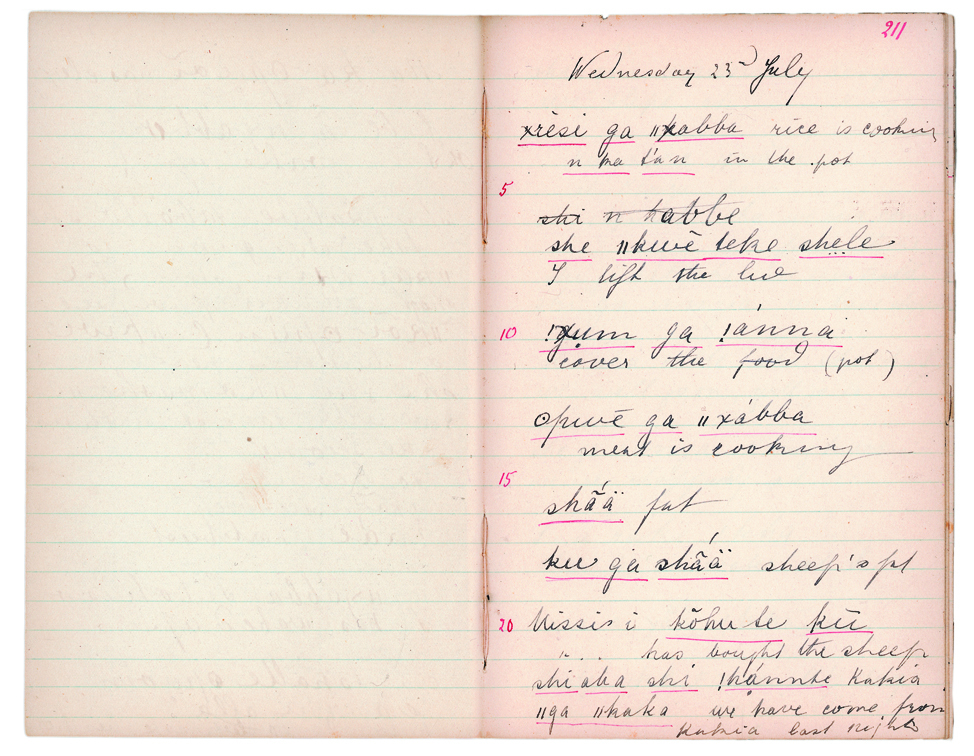 211
Wednesday 23d July
xrēsi ga ǁxabba rice is cooking
n ka tán in the pot
5
shi n habbe
she ǁkwē teke shele
I lift the lid
10 !gum ga !ánna
cover the food (pot)
ʘpwē ga ǁxábba
meat is cooking
15
shãä fat
ku ga shãä sheep's fat
20 Missis i kõhu te kū
" . . has bought the sheep
shi aba shi !hánnte Kakia
ǁga ǁkaka we have come from
Kakia last night